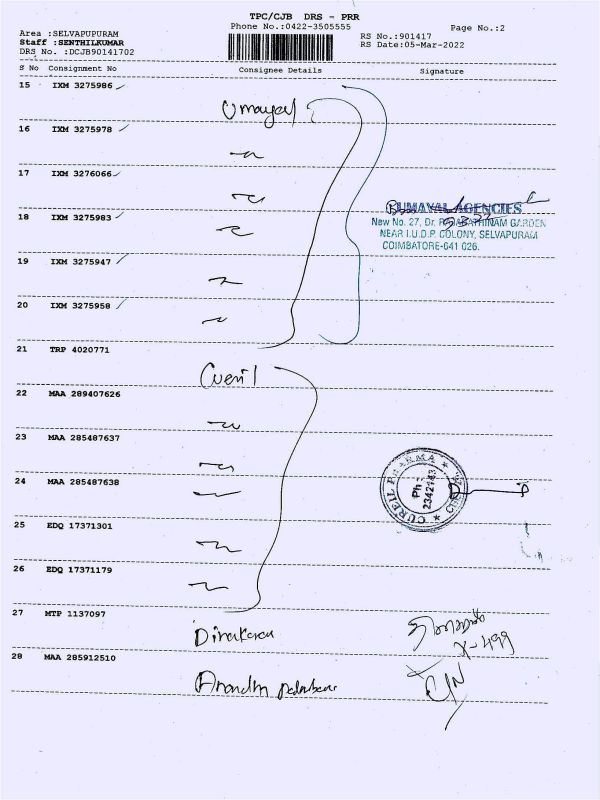 TPC/CJB DRS - PRR
Phone No.:0422-3505555
Page No.:2
Area :SELVAPUPURAM
Staff :SENTHILKUMAR
DRS No. :DCJB90141702
RS No.:901417
RS Date:05-Mar-2022
S No Consignment No Consignee Details Signature
15 IXM 3275986
Umayal
16 IXM 3275978
17 IXM 3276066
18 IXM 3275983
UMAYAL AGENCIES
New No. 27, Dr. GARDEN
NEAR I.U.D.P COLONY, SELVAPURAM
COIMBATORE-641 026.
19 IXM 3275947
20 IXM 3275958
21 TRP 4020771
22 MAA 289407626
23 MAA 285487637
24 MAA 285487638
CUREIL PHARMA
Ph :
2342143
25 EDQ 17371301
26 EDQ 17371179
27 MTP 1137097
Dinakaran
28 MAA 285912510